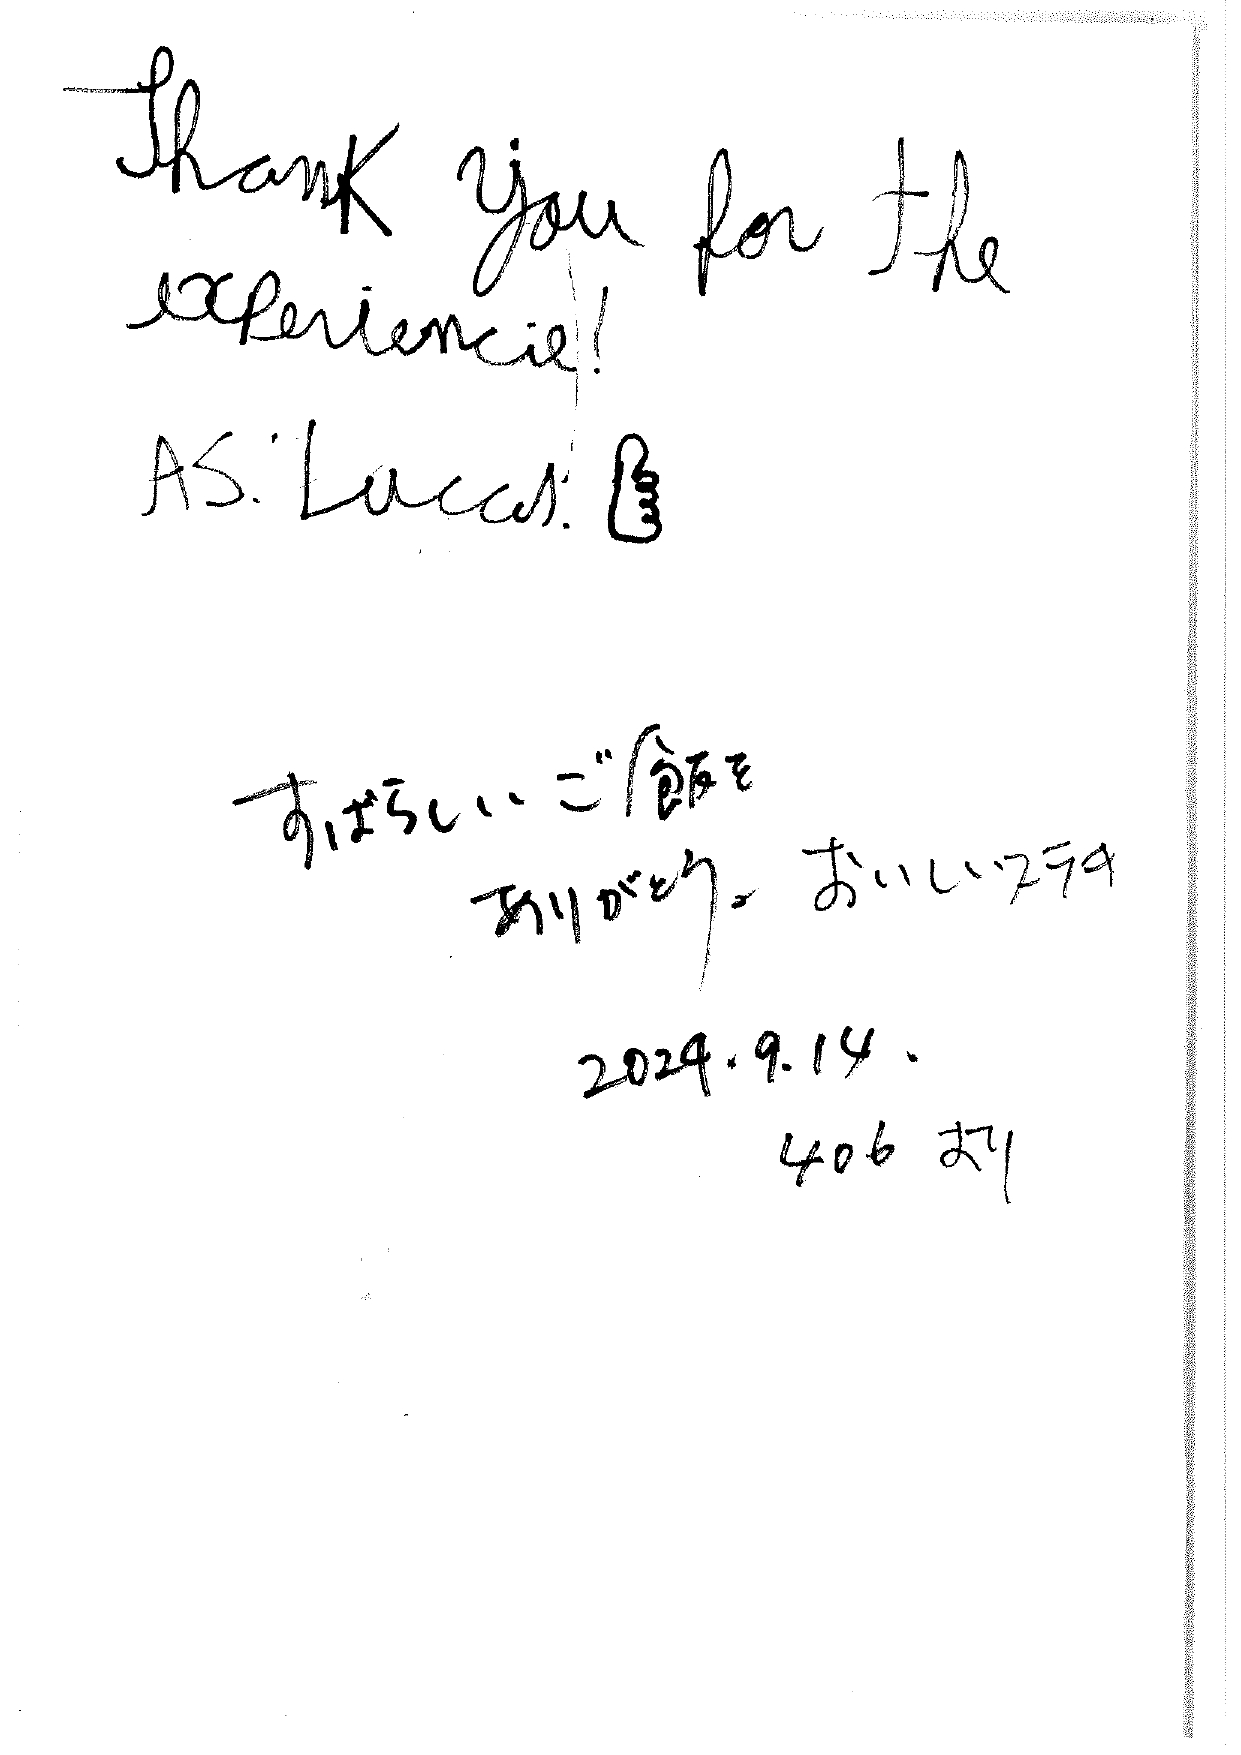 Thank you for the
experiencie!
AS: Luccas.
すばらしいご飯を
ありがとう。おいしいステキ
2024.9.14.
406 より